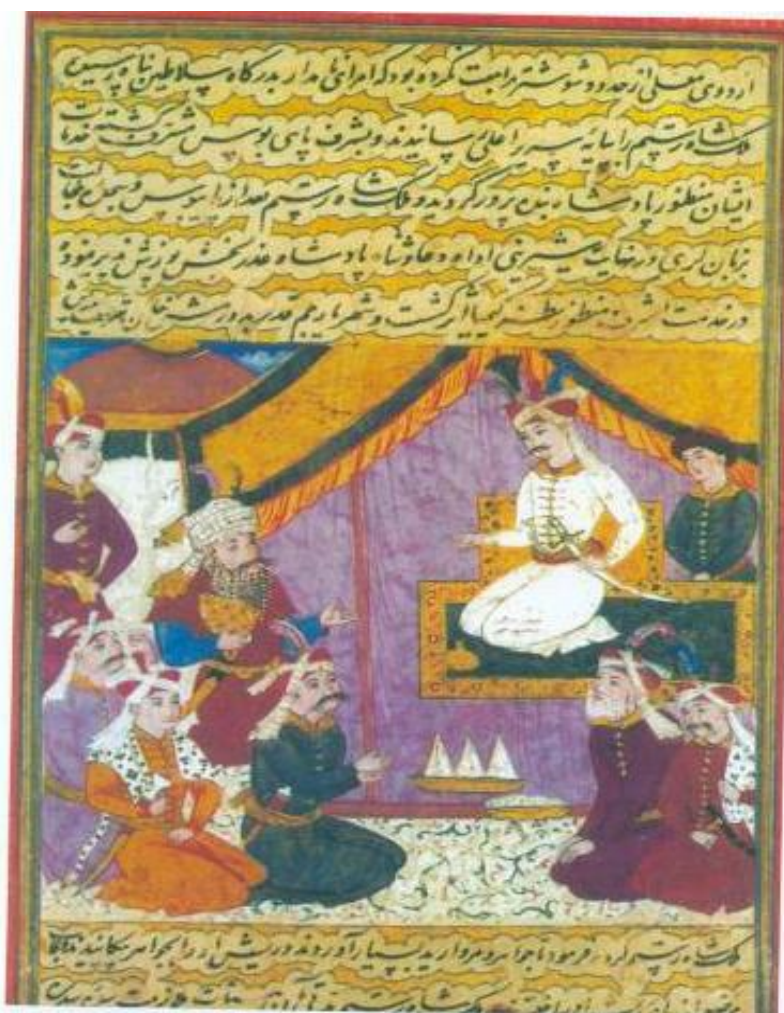 اردوی معلی از حدود شوشتر مراجعت نموده بود که امرای نامدار بدرگاه سلاطین پناه رسیده
ملک شاه رستم را بپایه سریر اعلی رسانیدند و بشرف پای بوس مشرف گشت خدمات
ایشان منظور پادشاه بنده پرور گردید و ملک شاه رستم بعد از پایبوس و
بزبان لری در نهایت شیرینی ادا دعا و ثنا پادشاه عذر بخش پوزش پذیر نموده
در خدمت اشرف منظور نظر کیمیا اثر گشت و شهریار جم قدر
ملک شاه رستم کرد فرمود تا جواهر و مروارید بسیار آوردند و ریش او را بجواهر
ملک شاه رستم